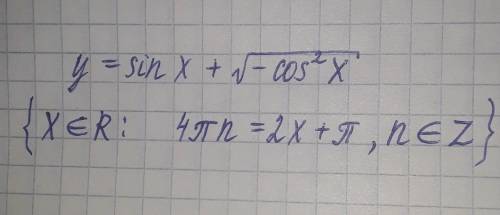 y = sin x + √(-cos² x)
{x ∈ R: 4πn = 2x + π, n ∈ Z}